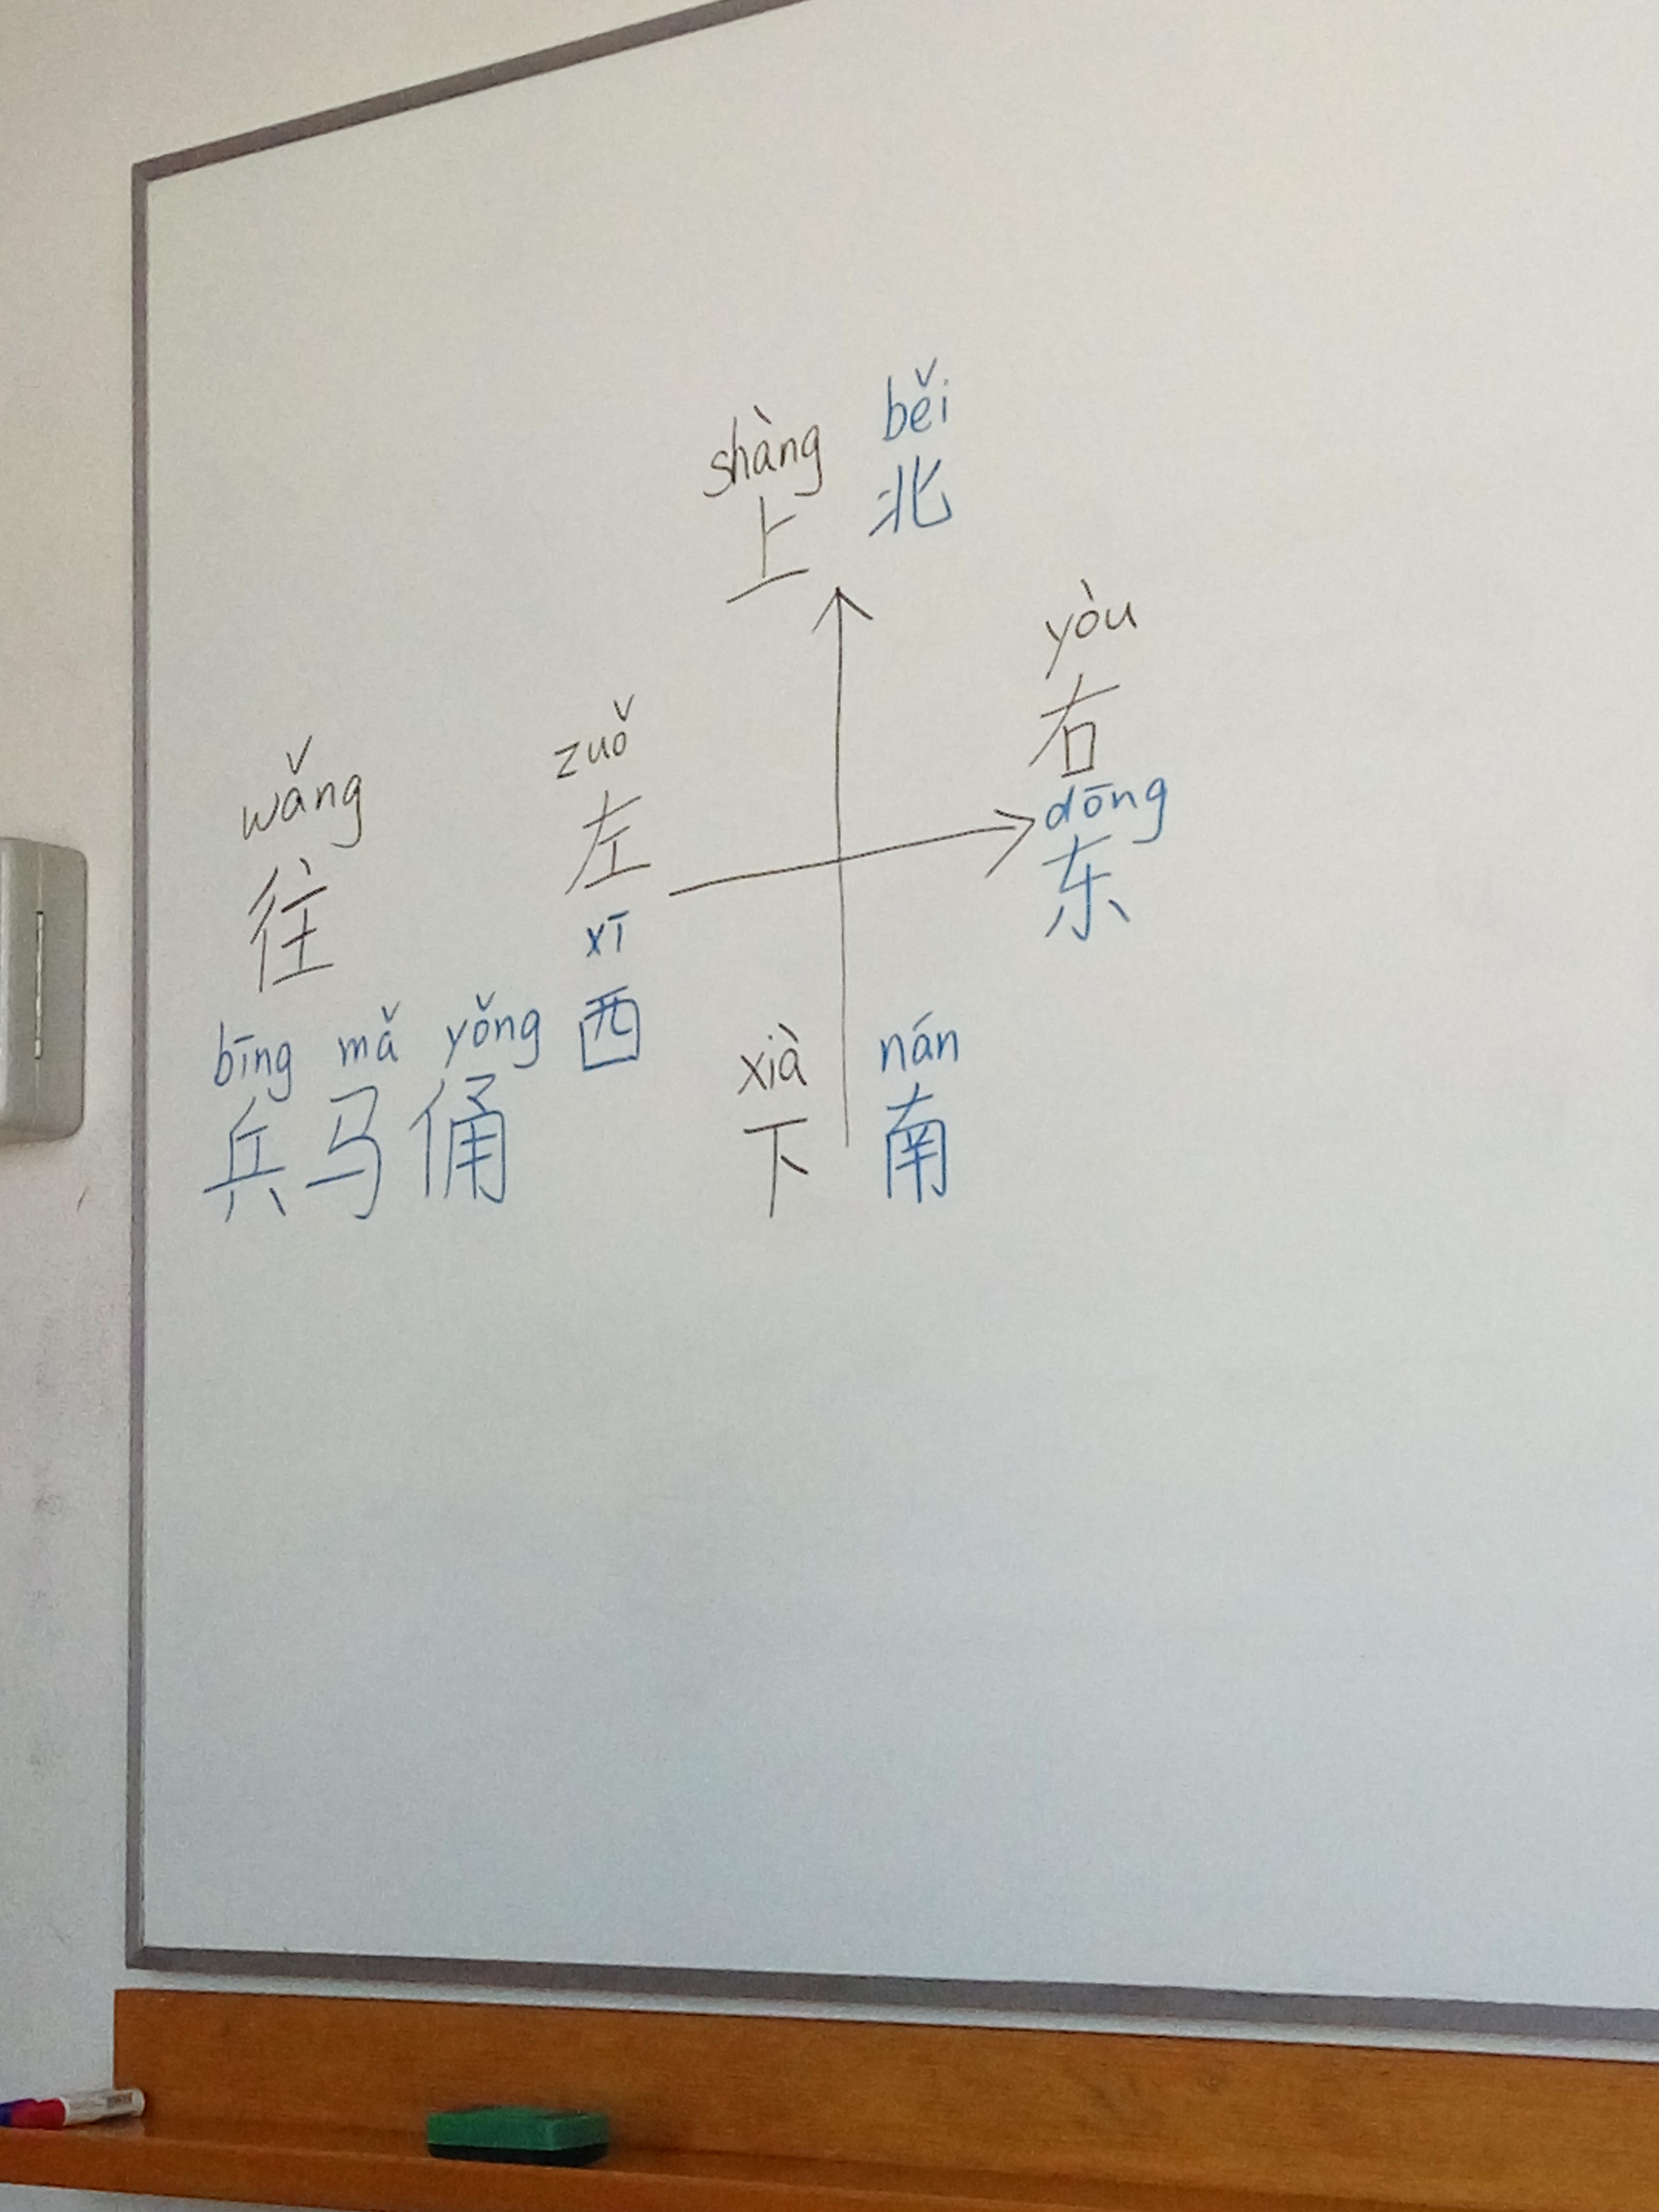 shàng běi
上 北
yòu
右
dōng
东
zuǒ
左
xī
西
wǎng
往
bīng mǎ yǒng
兵马俑
xià nán
下 南